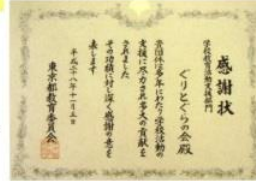 感謝状
学校教育活動支援部門
ぐりとぐらの会殿
貴団体は多年にわたり学校活動の
支援に尽力され多大の貢献を
されました
その功績に対し深く感謝の意を
表します
平成二十八年十一月五日
東京都教育委員会